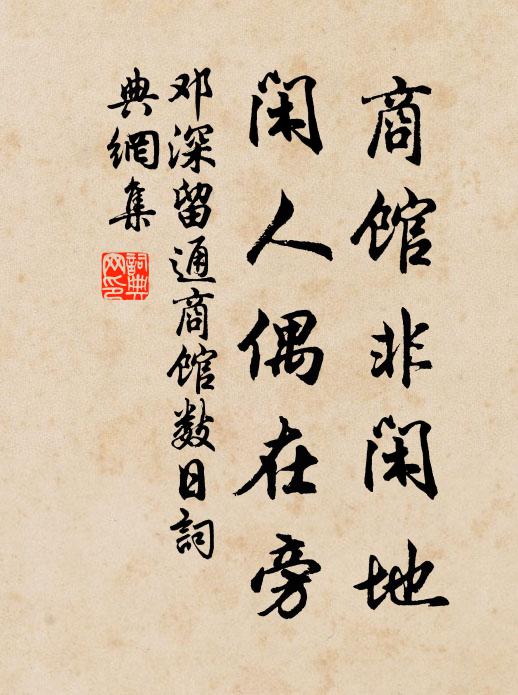 商馆非闲地
闲人偶在旁
邓深留通商馆数日词
典網集
詞典網印